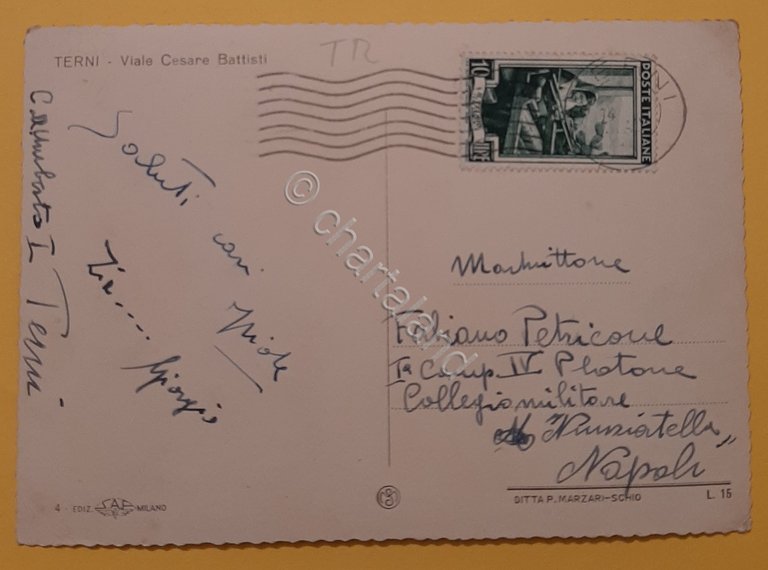 TERNI - Viale Cesare Battisti
TR
10 LIRE
POSTE ITALIANE
C. Umberto I Terni
Saluti cari
Giorgio
Fabiano Petricone
Iª Comp. IV Plotone
Collegio militare
"Nunziatella"
Napoli
© chartaland
4 - EDIZ. S.A.F. - MILANO
DITTA P. MARZARI-SCHIO
L. 15